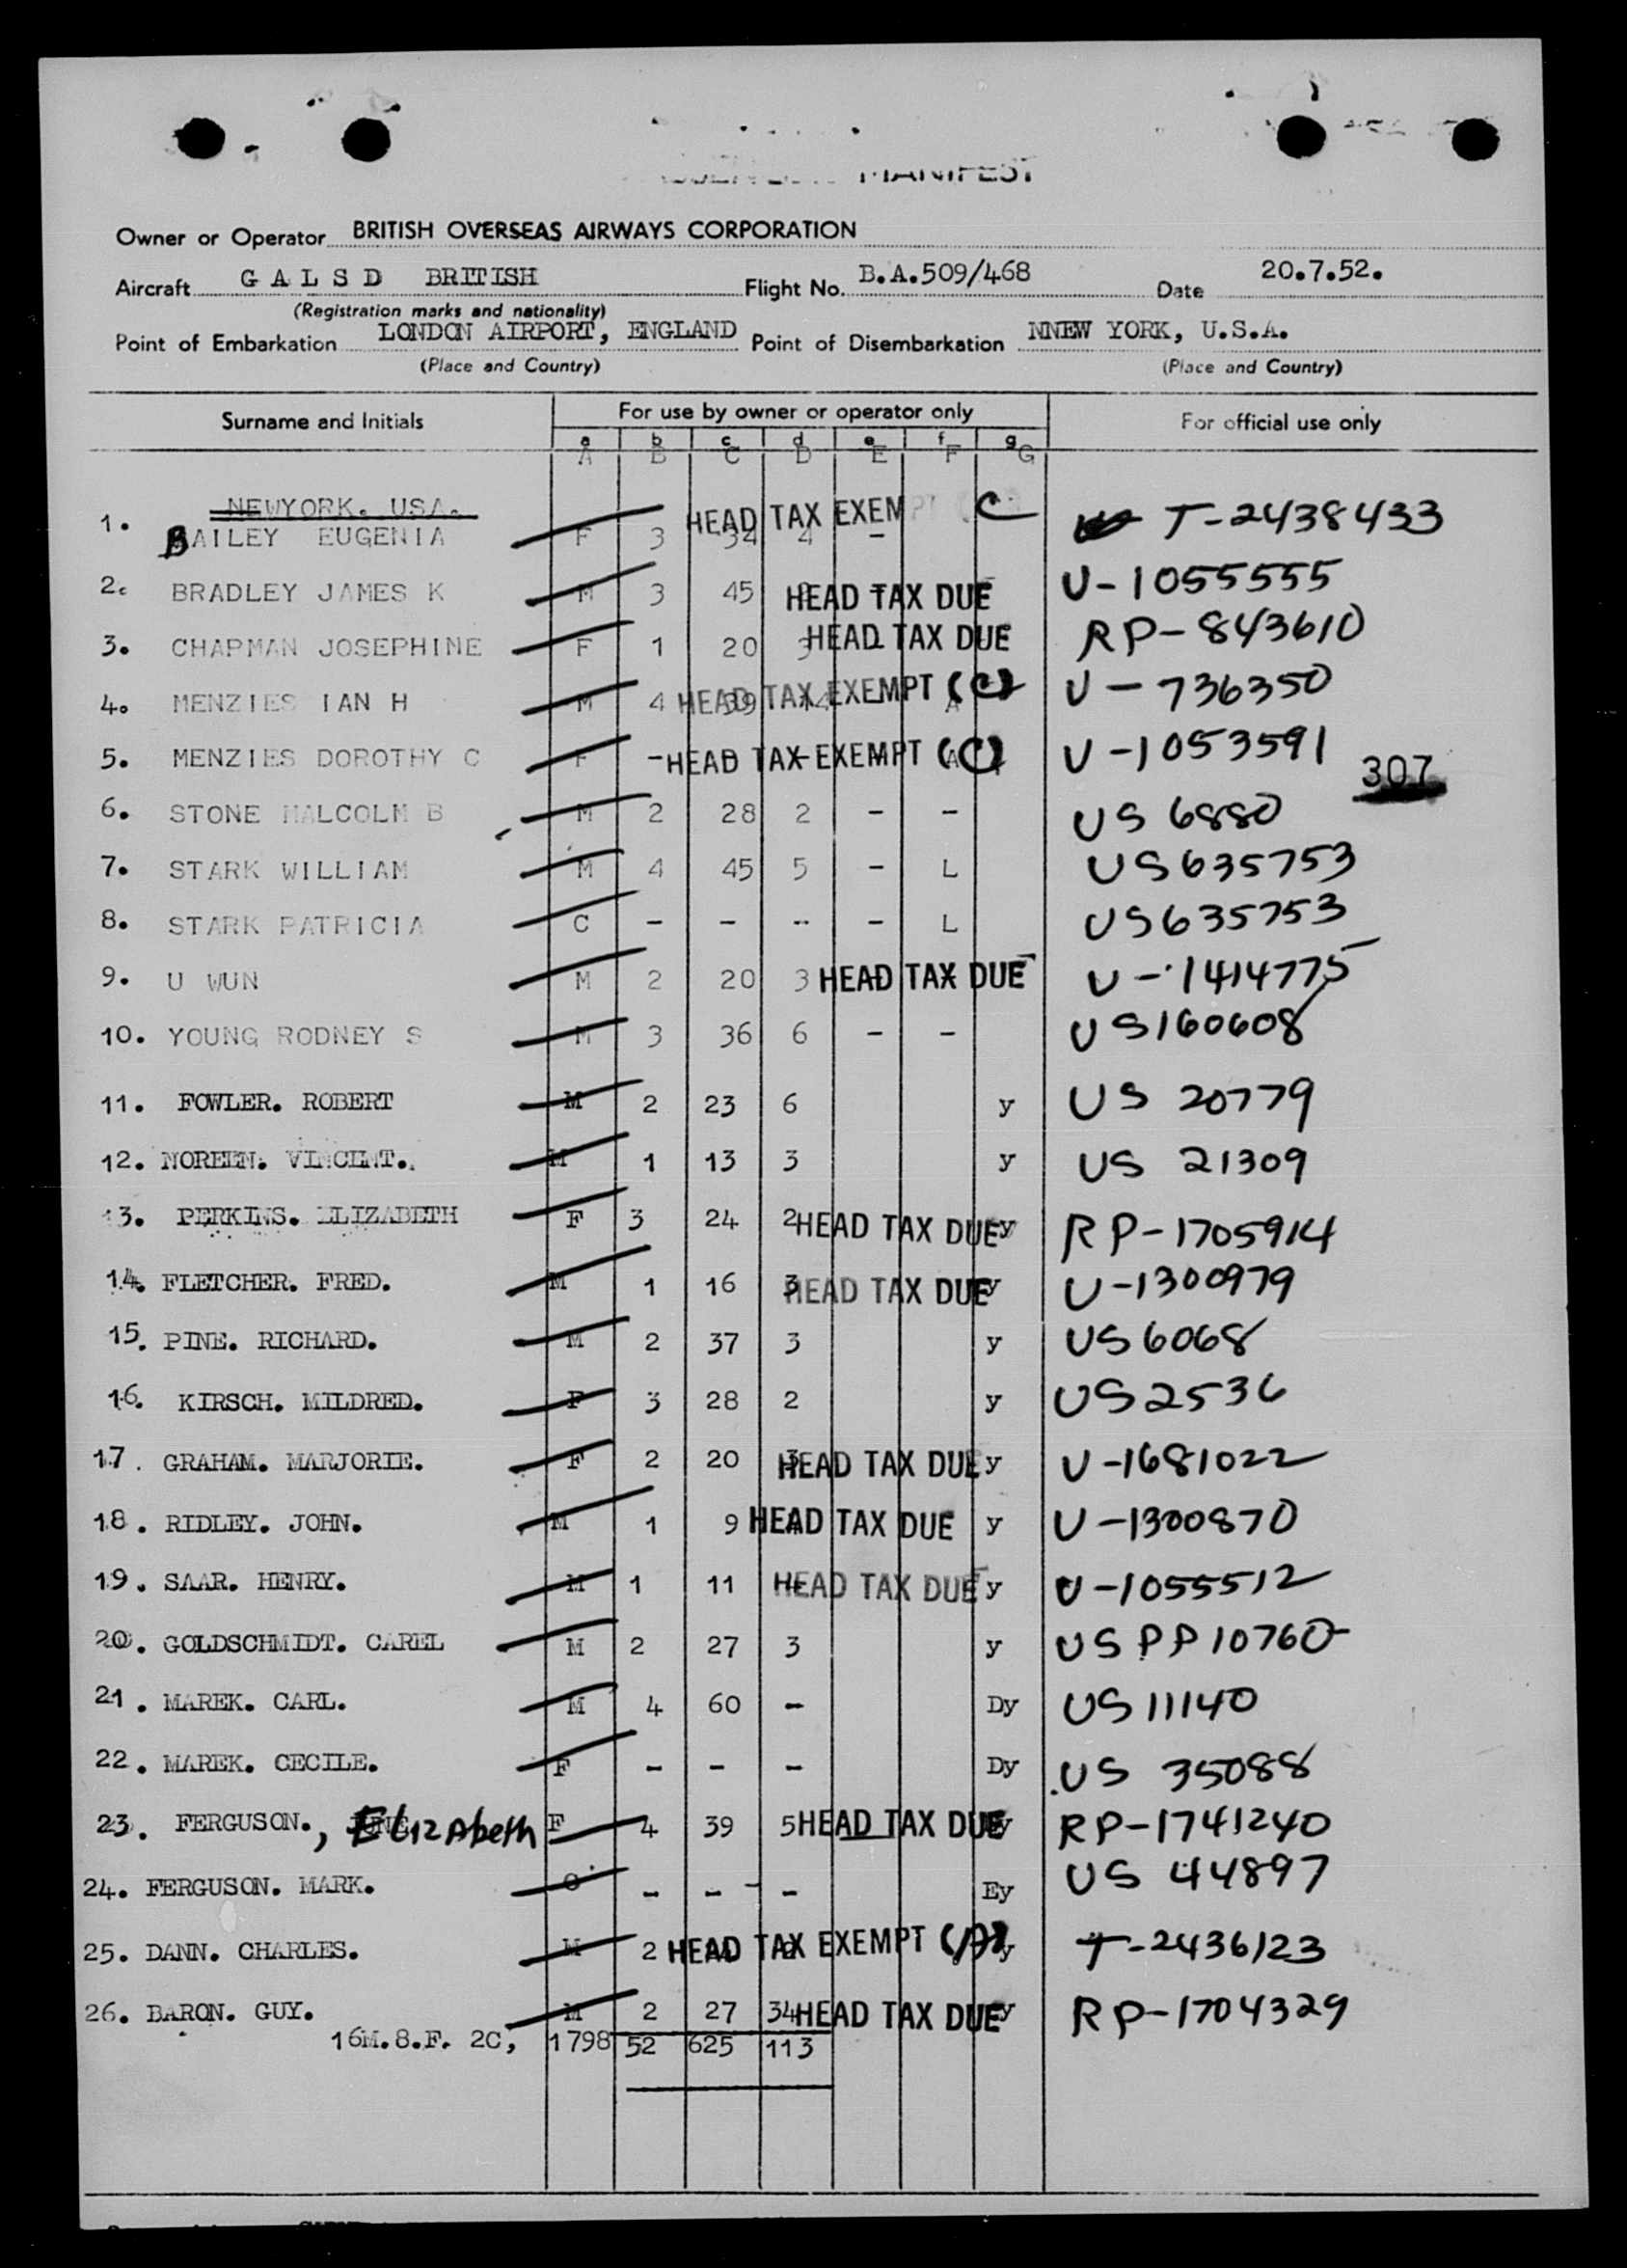 MANIFEST
Owner or Operator BRITISH OVERSEAS AIRWAYS CORPORATION
Aircraft G A L S D BRITISH Flight No. B.A.509/468 Date 20.7.52.
(Registration marks and nationality)
Point of Embarkation LONDON AIRPORT, ENGLAND Point of Disembarkation NNEW YORK, U.S.A.
(Place and Country) (Place and Country)
Surname and Initials For use by owner or operator only For official use only
a b c d e f g
A B C D E F G
NEWYORK. USA.
1. BAILEY EUGENIA F 3 34 4 - HEAD TAX EXEMPT C T-2438433
2. BRADLEY JAMES K M 3 45 HEAD TAX DUE U-1055555
3. CHAPMAN JOSEPHINE F 1 20 3 HEAD TAX DUE RP-843610
4. MENZIES IAN H M 4 39 14 HEAD TAX EXEMPT (C) A U-736350
5. MENZIES DOROTHY C F - HEAD TAX EXEMPT (C) A U-1053591
307
6. STONE MALCOLM B M 2 28 2 - - US 6880
7. STARK WILLIAM M 4 45 5 - L US635753
8. STARK PATRICIA C - - - - L US635753
9. U WUN M 2 20 3 HEAD TAX DUE U-1414775
10. YOUNG RODNEY S M 3 36 6 - - US160608
11. FOWLER. ROBERT M 2 23 6 y US 20779
12. NOREEN. VINCENT. M 1 13 3 y US 21309
13. PERKINS. ELIZABETH F 3 24 2 HEAD TAX DUE y RP-1705914
14. FLETCHER. FRED. M 1 16 3 HEAD TAX DUE y U-1300979
15. PINE. RICHARD. M 2 37 3 y US6068
16. KIRSCH. MILDRED. F 3 28 2 y US2536
17. GRAHAM. MARJORIE. F 2 20 3 HEAD TAX DUE y U-1681022
18. RIDLEY. JOHN. M 1 9 HEAD TAX DUE y U-1300870
19. SAAR. HENRY. M 1 11 HEAD TAX DUE y U-1055512
20. GOLDSCHMIDT. CAREL M 2 27 3 y US PP 10760
21. MAREK. CARL. M 4 60 - Dy US 11140
22. MAREK. CECILE. F - - - Dy US 35088
23. FERGUSON., Elizabeth F 4 39 5 HEAD TAX DUE y RP-1741240
24. FERGUSON. MARK. C - - - Ey US 44897
25. DANN. CHARLES. M 2 HEAD TAX EXEMPT y T-2436123
26. BARON. GUY. M 2 27 34 HEAD TAX DUE y RP-1704329
16M.8.F. 2C, 1798 52 625 113